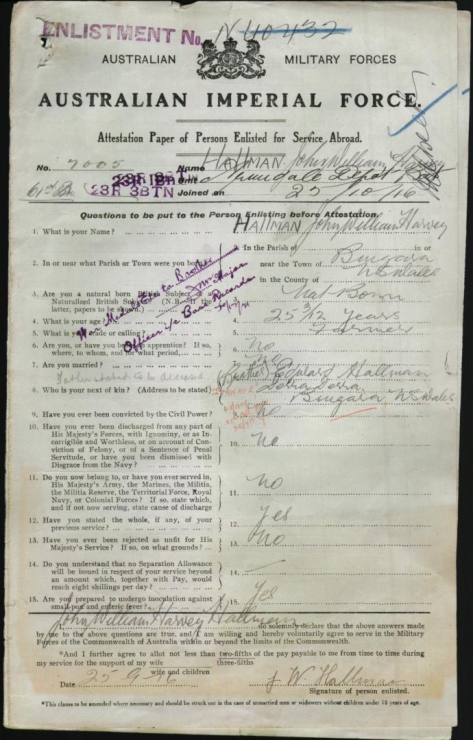 ENLISTMENT No. N 40432
AUSTRALIAN MILITARY FORCES
AUSTRALIAN IMPERIAL FORCE.
Attestation Paper of Persons Enlisted for Service Abroad.
No. 7005 Name HALLMAN John William Harvey
Unit Depot
Joined on 25/10/16
Questions to be put to the Person Enlisting before Attestation.
1. What is your Name? HALLMAN John William Harvey
2. In or near what Parish or Town were you born? In the Parish of in or
near the Town of Bingara
in the County of N S Wales
3. Are you a natural born British Subject or a Nat Born
Naturalized British Subject? (N.B. If the
latter, papers to be shown)
4. What is your age? 25 years
5. What is your trade or calling? Farmer
6. Are you, or have you been an apprentice? If so, No
where, to whom, and for what period
7. Are you married?
Father stated to be deceased
8. Who is your next of kin? (Address to be stated) (Brother) Edward Hallman
Bingara N S Wales
War Medals to Brother
Officer i/c Base Records
9. Have you ever been convicted by the Civil Power? No
10. Have you ever been discharged from any part of
His Majesty's Forces, with Ignominy, or as In-
corrigible and Worthless, or on account of Con-
viction of Felony, or of a Sentence of Penal
Servitude, or have you been dismissed with
Disgrace from the Navy? 10. No
11. Do you now belong to, or have you ever served in,
His Majesty's Army, the Marines, the Militia,
the Militia Reserve, the Territorial Force, Royal
Navy, or Colonial Forces? If so, state which,
and if not now serving, state cause of discharge 11. No
12. Have you stated the whole, if any, of your
previous service? 12. Yes
13. Have you ever been rejected as unfit for His
Majesty's Service? If so, on what grounds? 13. No
14. Do you understand that no Separation Allowance
will be issued in respect of your service beyond
an amount which, together with Pay, would
reach eight shillings per day? 14.
15. Are you prepared to undergo inoculation against
small pox and enteric fever? 15. Yes
I, John William Harvey Hallman do solemnly declare that the above answers made
by me to the above questions are true, and I am willing and hereby voluntarily agree to serve in the Military
Forces of the Commonwealth of Australia within or beyond the limits of the Commonwealth.
*And I further agree to allot not less than two-fifths of the pay payable to me from time to time during
three-fifths
my service for the support of my wife
wife and children
Date 25-9-16 J W Hallman
Signature of person enlisted.
*This clause to be amended where necessary and should be struck out in the case of unmarried men or widowers without children under 18 years of age.